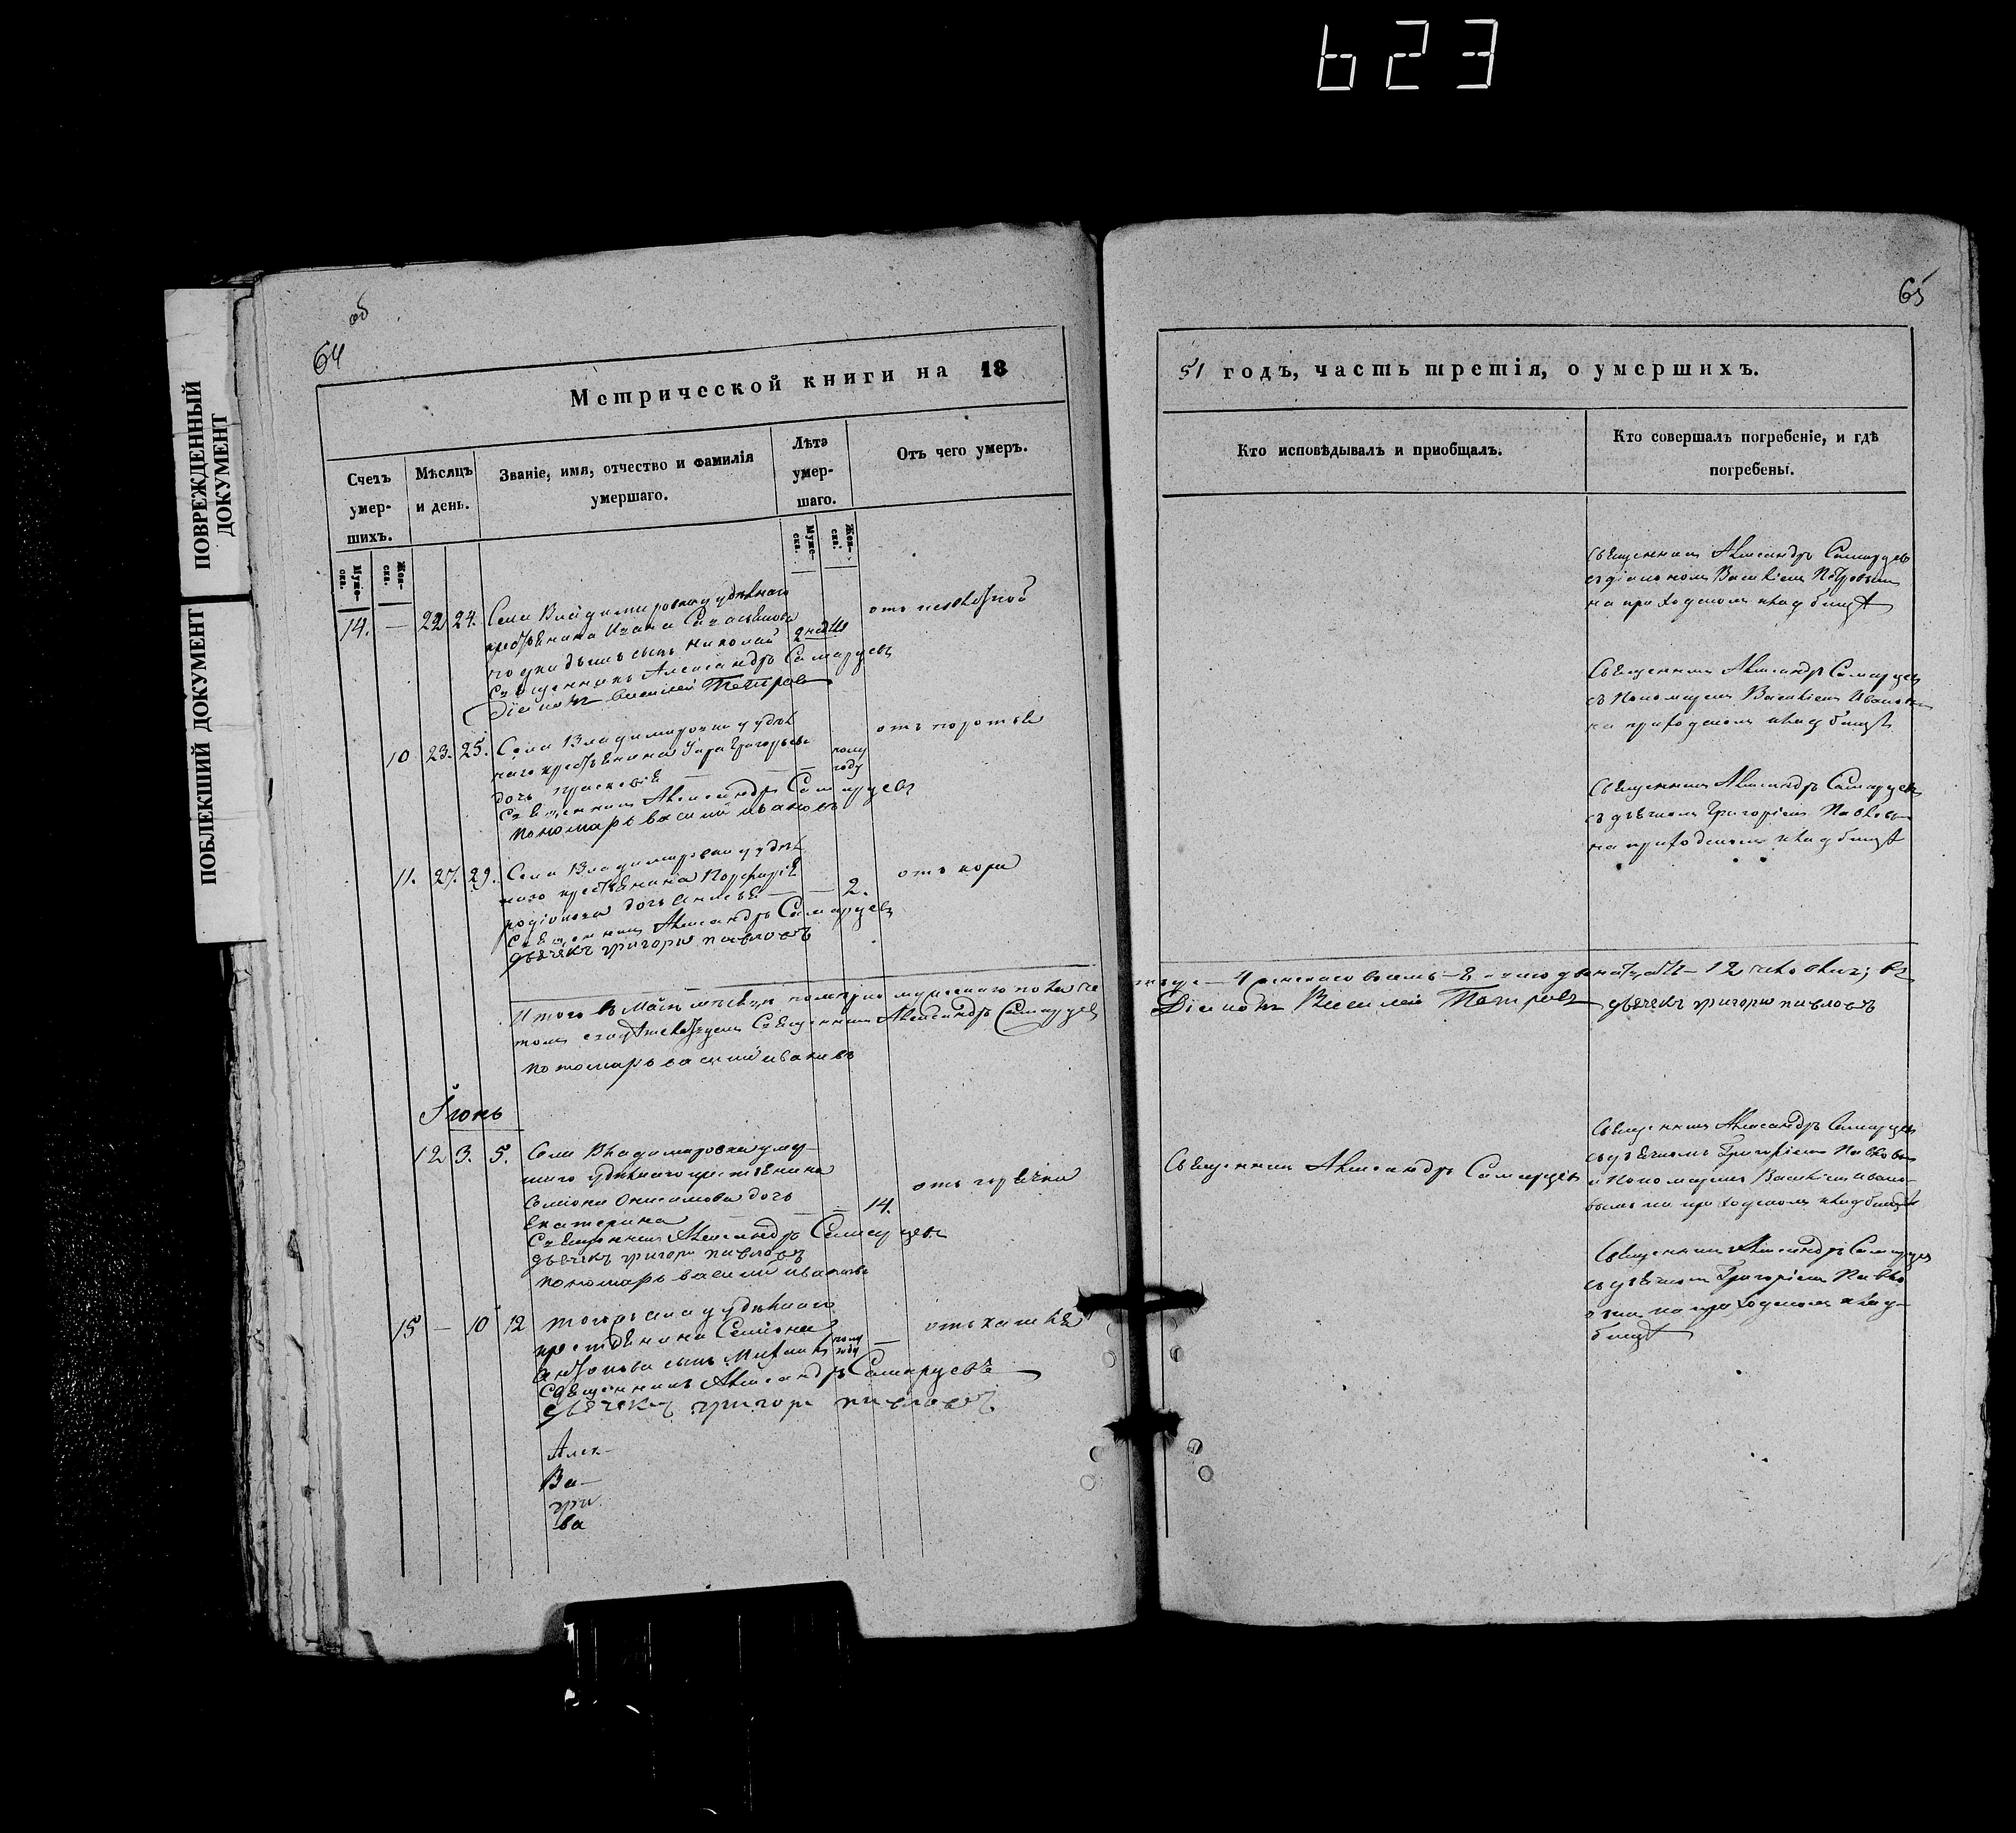 623
ПОВРЕЖДЕННЫЙ
ДОКУМЕНТ
ПОБЛЕКШИЙ ДОКУМЕНТ
64
об
Метрической книги на 18
Счетъ умер-шихъ.
Мѣсяцъ и день.
Званіе, имя, отчество и фамилія умершаго.
Лѣта умер-шаго.
Отъ чего умеръ.
Муже-ска.
Жен-ска.
Муже-ска.
Жен-ска.
14. — 22 24. Села Владимировки удѣльнаго
крестьянина Ивана
сынъ Николай 2
Священникъ Александръ Самарцевъ
Діаконъ Василий Петровъ
10 23. 25. Села Владимировки удѣль
наго крестьянина Григорьева
дочь полу году
Священникъ Александръ Самарцевъ
пономарь василий ивановъ
11. 27. 29. Села Владимировки удѣль
наго крестьянина
родіонова дочь — — 2. отъ кори
Священникъ Александръ Самарцевъ
дьячекъ григори павловъ
Итого въ Маѣ мѣсяцѣ померло мужескаго пола че
томъ Священникъ Александръ Самарцевъ
пономарь василий ивановъ
Іюнь
12 3. 5. Села Владимировки умер-
шаго удѣльнаго крестьянина
Семіона Онисимова дочь отъ горячки
Екатерина — — 14.
Священникъ Александръ Самарцевъ
дьячекъ григори павловъ
пономарь василий ивановъ
15 — 10 12 тогожъ села удѣльнаго
крестьянина Семіона отъ кашля
Антонова сынъ Михаилъ полу году —
Священникъ Александръ Самарцевъ
дьячекъ григори павловъ
Алек-
Ва-
гри
ва
65
51 годъ, часть третія, о умершихъ.
Кто исповѣдывалъ и приобщалъ.
Кто совершалъ погребеніе, и гдѣ
погребены.
Священникъ Александръ Самарцевъ
съ діакономъ Василіемъ Петровымъ
на приходскомъ кладбищѣ
Священникъ Александръ Самарцевъ
съ Пономаремъ Василіемъ Ивановымъ
на приходскомъ кладбищѣ
Священникъ Александръ Самарцевъ
съ дьячкомъ Григоріемъ Павловымъ
на приходскомъ кладбищѣ
— 4 женскаго восемь — 8 двенатцать — 12 человекъ; въ
Діаконъ Василій Петровъ дьячекъ григори павловъ
Священникъ Александръ Самарцевъ
Священникъ Александръ Самарцевъ
съ дьячкомъ Григоріемъ Павловымъ
и Пономаремъ Василіемъ Ивано-
вымъ на приходскомъ кладбищѣ
Священникъ Александръ Самарцевъ
съ дьячкомъ Григоріемъ Павло
вымъ на приходскомъ клад-
бищѣ